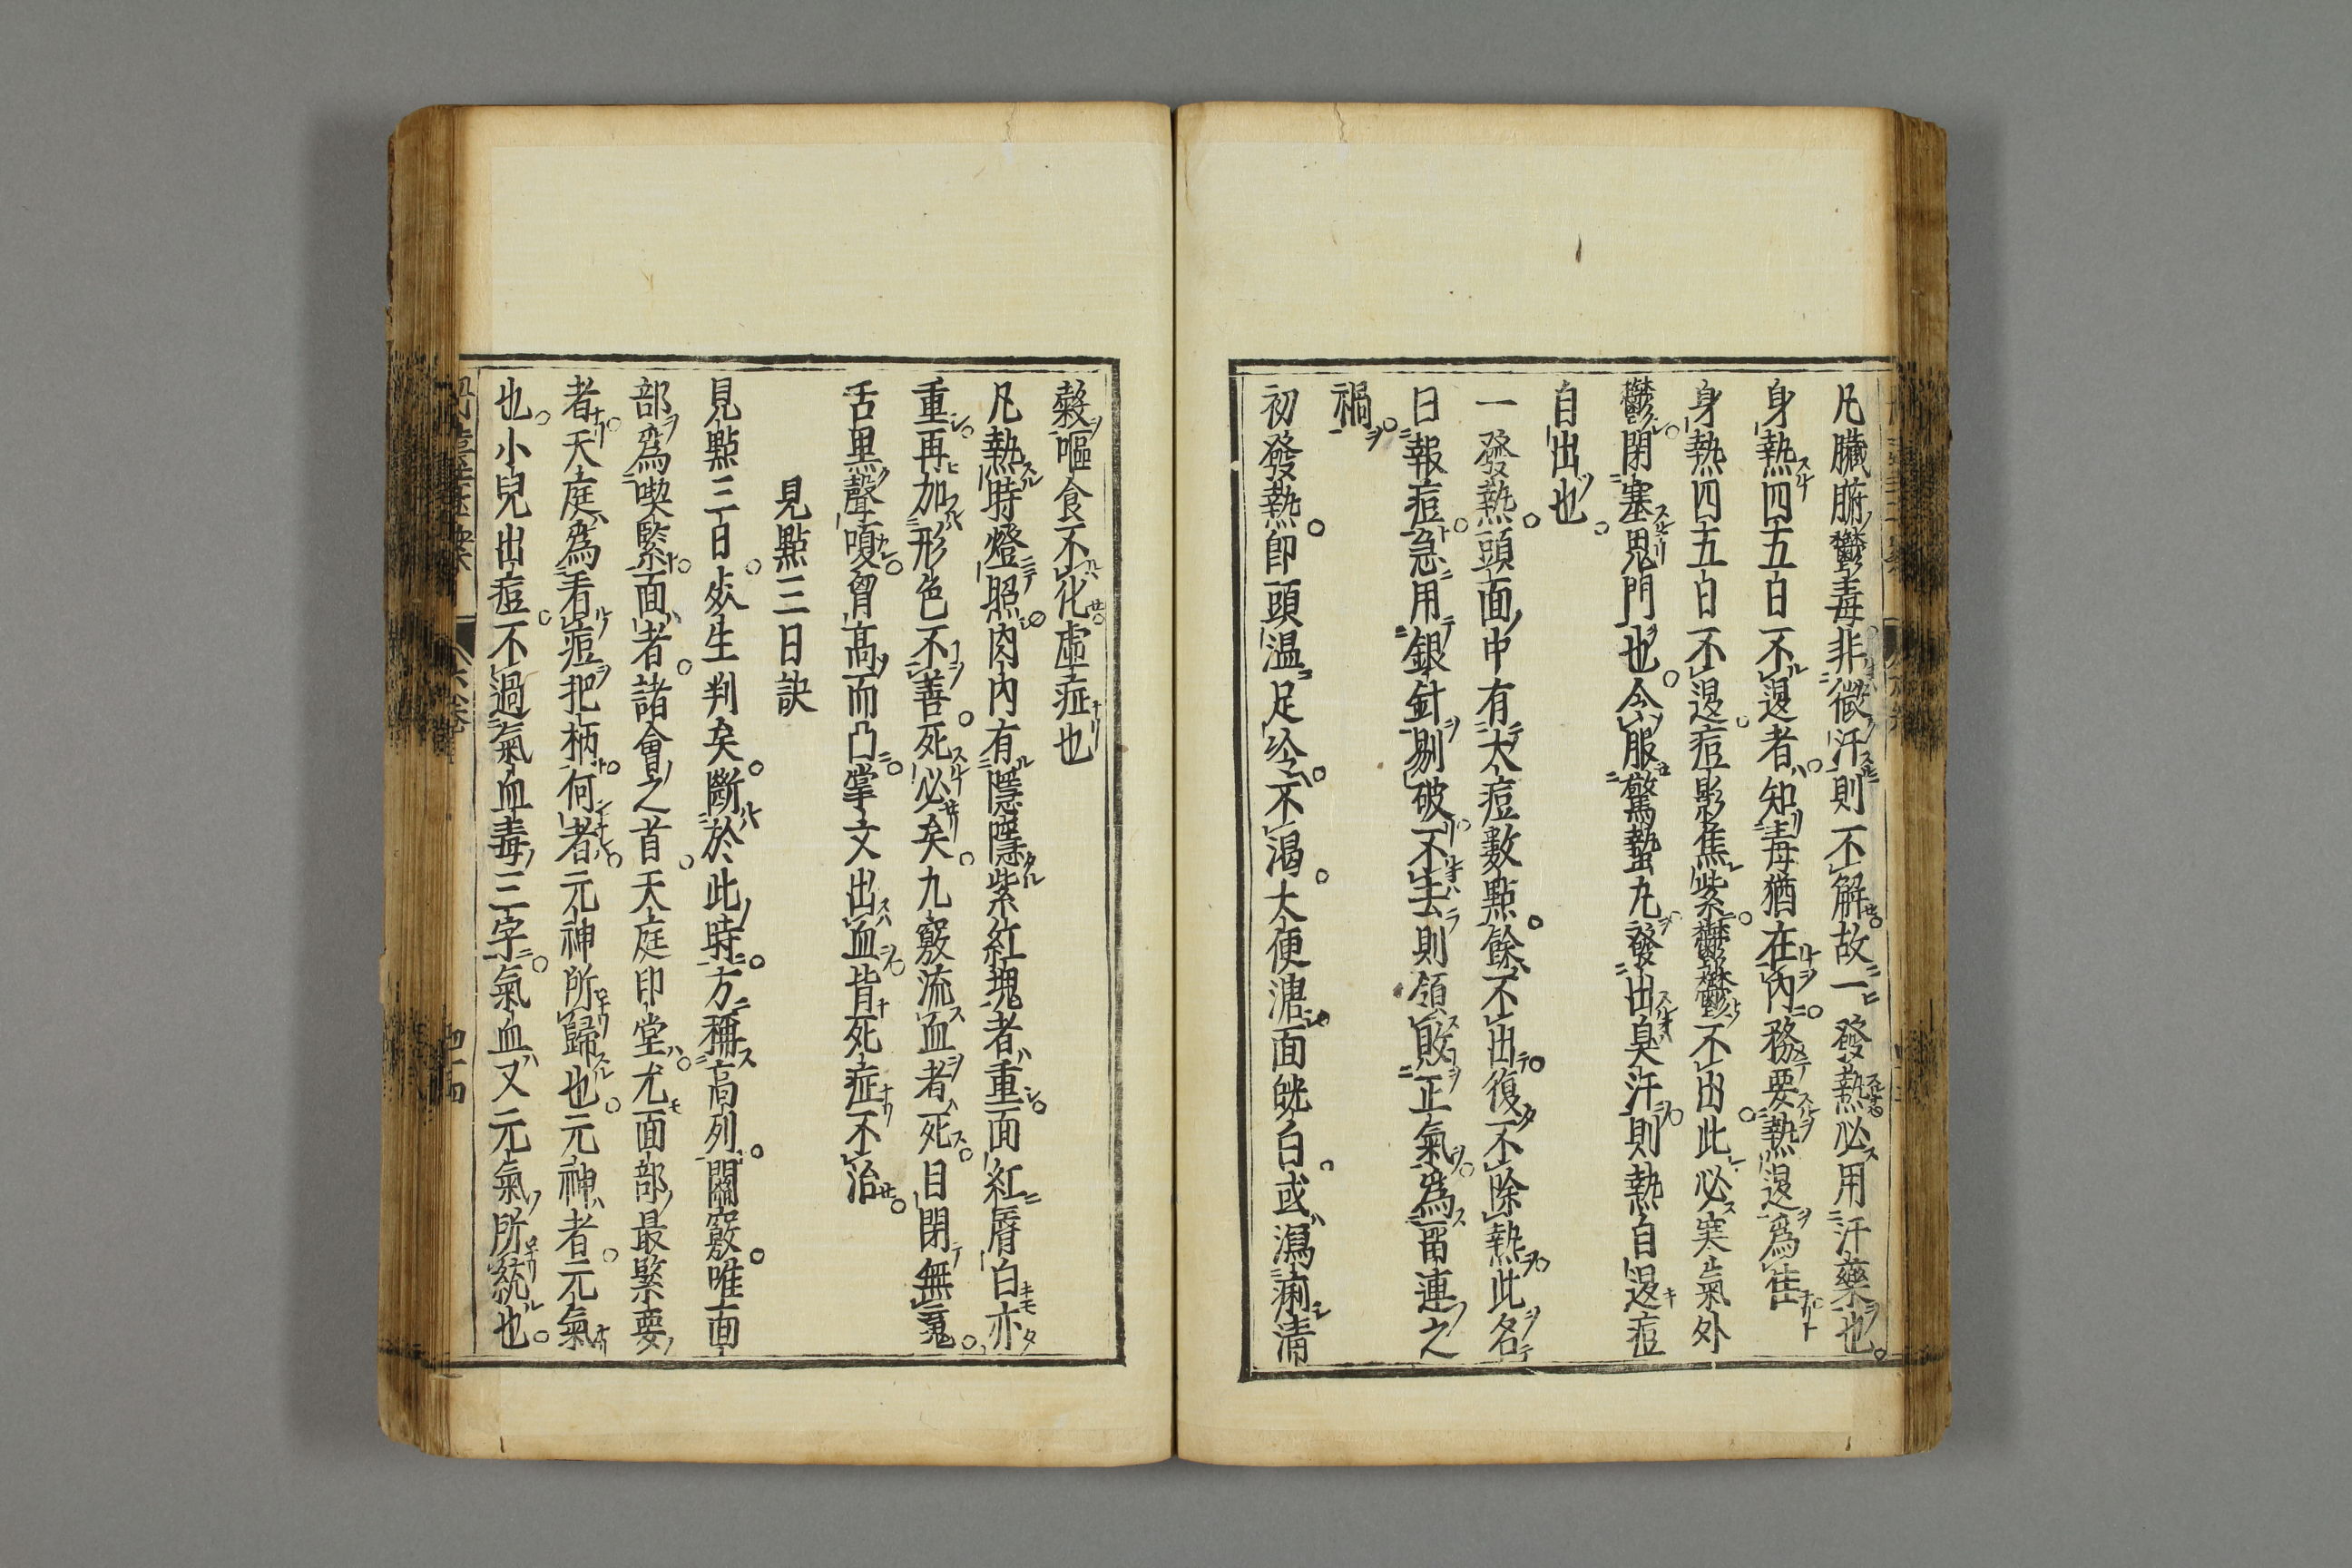 凡臟腑鬱毒非微汗則不解故一發熱必用汗藥也
身熱四五日不退者知毒猶在內務要熱退為佳
身熱四五日不退痘影焦紫鬱鬱不出此必寒氣外
鬱閉塞鬼門也今服驚蟄丸發出臭汗則熱自退痘
自出也
一發熱頭面中有大痘數點餘不出復不除熱此名
曰報痘急用銀針剔破不去則領敗正氣為留連之
禍
初發熱即頭温足冷不渴大便溏面㿠白或瀉痢清
穀嘔食不化虛症也
凡熱時燈照肉內有隱隱紫紅塊者重面紅脣白亦
重再加形色不善死必矣九竅流血者死目閉無䰟
舌黑聲嗄胷高而凸掌文出血皆死症不治
見點三日訣
見點三日夾生判矣斷於此時方稱高列闢竅唯面
部為喫緊面者諸會之首天庭印堂尤面部最緊要
者天庭為看痘把柄何者元神所歸也元神者元氣
也小兒出痘不過氣血毒三字氣血又元氣所統也
六卷
四十四